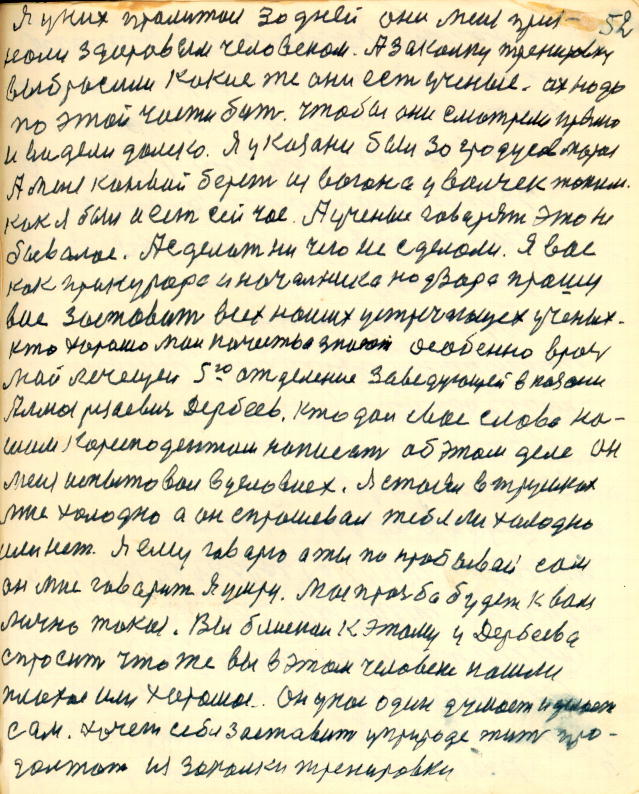 Я у них пролитол 30 дней они меня приз- 52
ноли здоровым человеком. А закалку тренировку
выбросили какие же они ест ученые. их надо
по этой части бит. чтобы они смотрели прямо
и видели далеко. Я у Казани был 30 градусов мороз
А меня конвой берет из вогона у волчек
как я был и ест сейчас. А ученые говарят это не
бывалое. А сделат ни чего не сделоли. Я вас
как пракурора и началника надзора прашу
вас заставит всех наших ученых.
кто харашо маи качества знают особенно врач
май лечещей 5го отделение заведующей в казани
Дербеев. кто дал свае слово на-
шим коресподентам написат об этом деле он
меня испытовал в уеловиех. Я стоял в трусиках
мне холодно а он спрашевал тебе ли халодно
или нет. Я ему говарю а ты попробывай сам
он мне говарит я умру. Мая прозба будет к вам
лично такая. Вы блиском к этому у Дербеева
спросит что же вы в этом человеке нашли
плохое или харошое. Он у нас один думает и делает
сам. хочет себя заставит у природе жит про-
должат из закалки тренировки